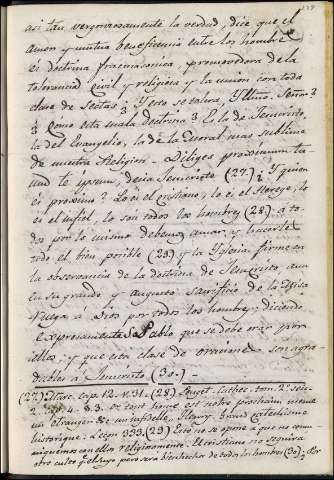 asi tan vergonzosamente la verdad, dice que el
amor y mutua beneficencia entre los hombres
es doctrina fracmasonica, promovedora de la
tolerancia civil y religiosa y la union con toda
clase de sectas? Y esto se calva, Yllmo. Señor?
¿Como esta mala doctrina? Es la de Jesucristo,
la del Evangelio, la de la Moral mas sublime
de nuestra Religion. Diliges proximum tu
um te ipsum, decia Jesucristo (27) ¿Y quien
es proximo? Lo es el cristiano, lo es el Herege, lo
es el infiel, lo son todos los hombres (28) á to
dos por lo mismo debemos amar, y hacerles
todo el bien posible (29) y la Yglesia firme en
la observancia de la doctrina de Jesucristo, aun
en su grande y augusto sacrificio de la Misa
ruega á Dios por todos los hombres, diciendo
expresamente S. Pablo que se debe orar por
ellos; y que esta clase de oraciones son agra
dables á Jesucristo (30)
(27) Marc. cap. 12. v. 31. (28) Pouget. Cathec. tom. 2.
2. § 3. tout homme est notre prochain meme
un etranger, un infidelle, Fleury. Grand catechisme
historique. Leçon 333. (29) Esto no se opone á que no comu
niquemos con ellos religiosamente. El cristiano no seguira
otro culto q.e el suyo pero sera bienhechor de todos los hombres (30)